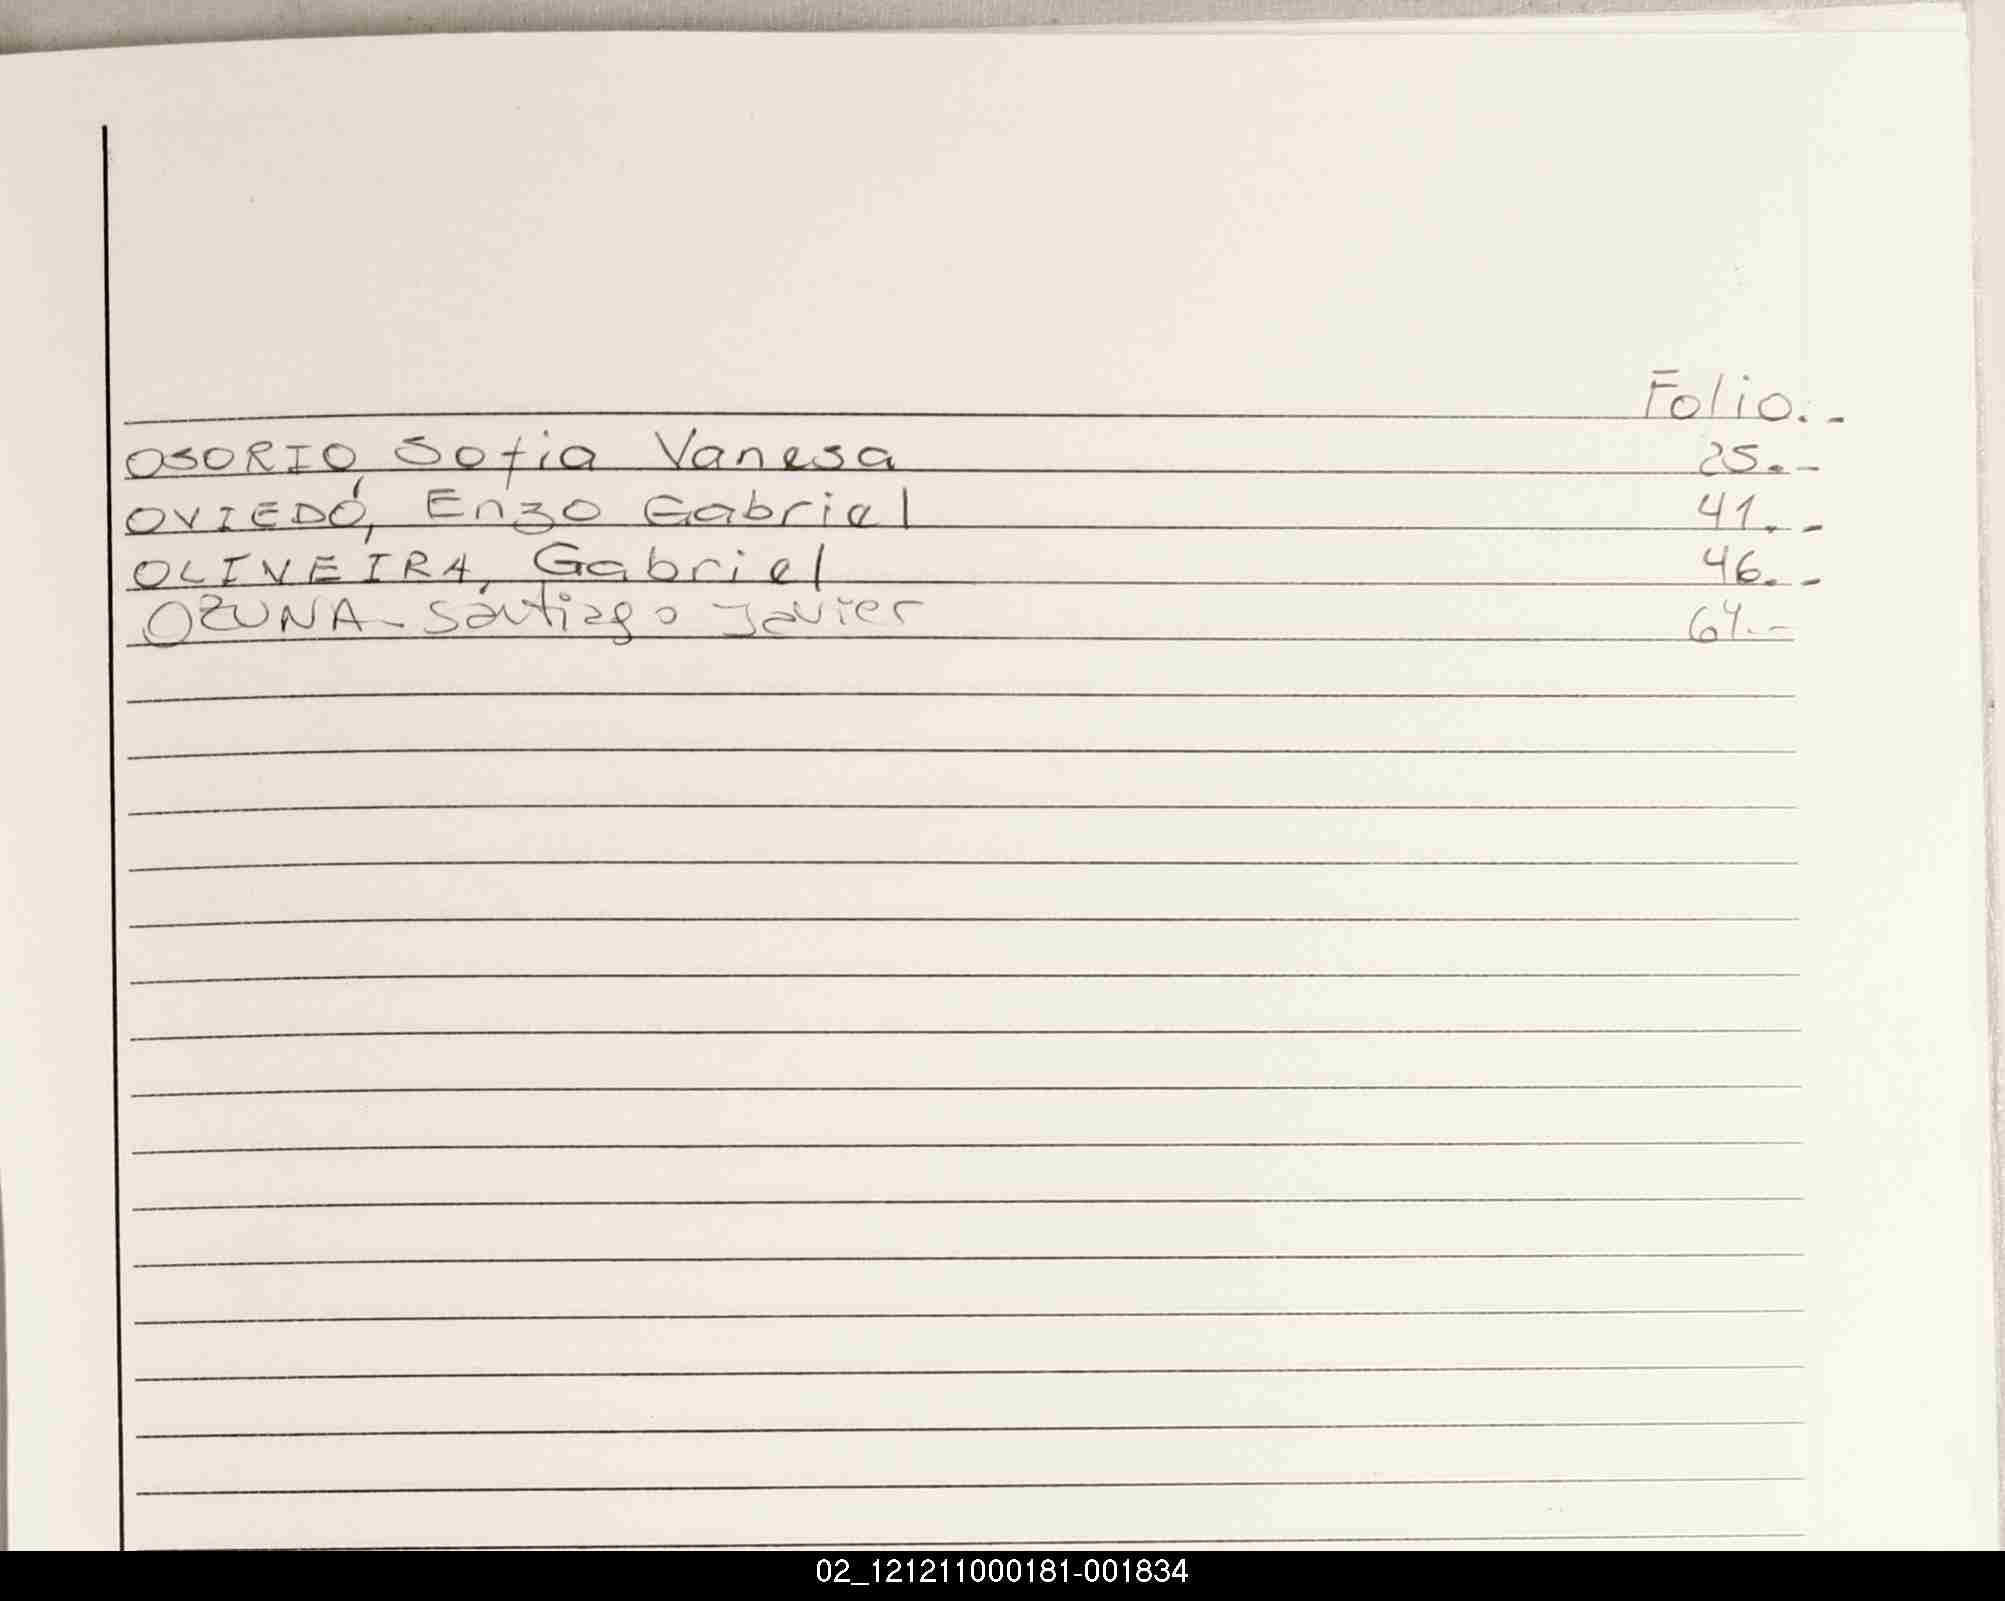 Folio.-
OSORIO, Sofia Vanesa 25.-
OVIEDO, Enzo Gabriel 41.-
OLIVEIRA, Gabriel 46.-
OZUNA - Santiago Javier 64.-
02_121211000181-001834